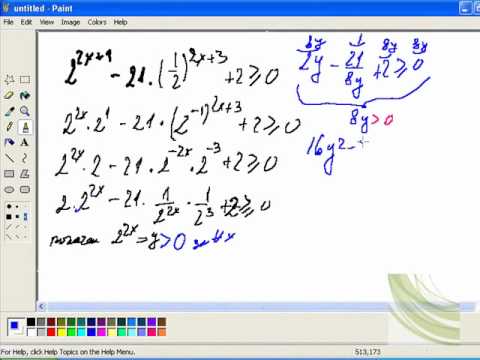 untitled - Paint
File Edit View Image Colors Help
2^{2x+1} - 21·(1/2)^{2x+3} + 2 ≥ 0
2^{2x}·2^1 - 21·(2^{-1})^{2x+3} + 2 ≥ 0
2^{2x}·2 - 21·2^{-2x}·2^{-3} + 2 ≥ 0
2·2^{2x} - 21·1/2^{2x}·1/2^3 + 2 ≥ 0
2^{2x} = y > 0 x
8y 1 8y 8y
2y - 21/8y + 2 ≥ 0
8y > 0
16y² -
For Help, click Help Topics on the Help Menu.
513,173